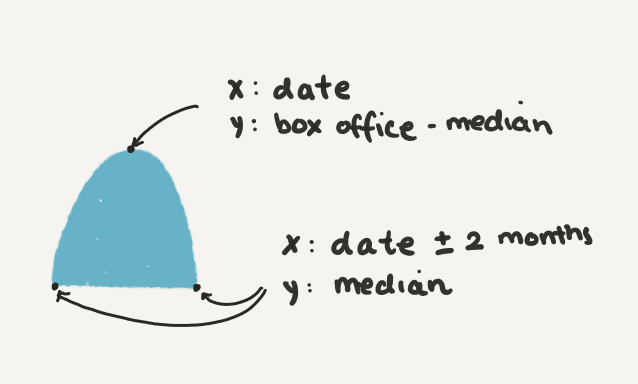 x: date
y: box office - median
x: date ± 2 months
y: median